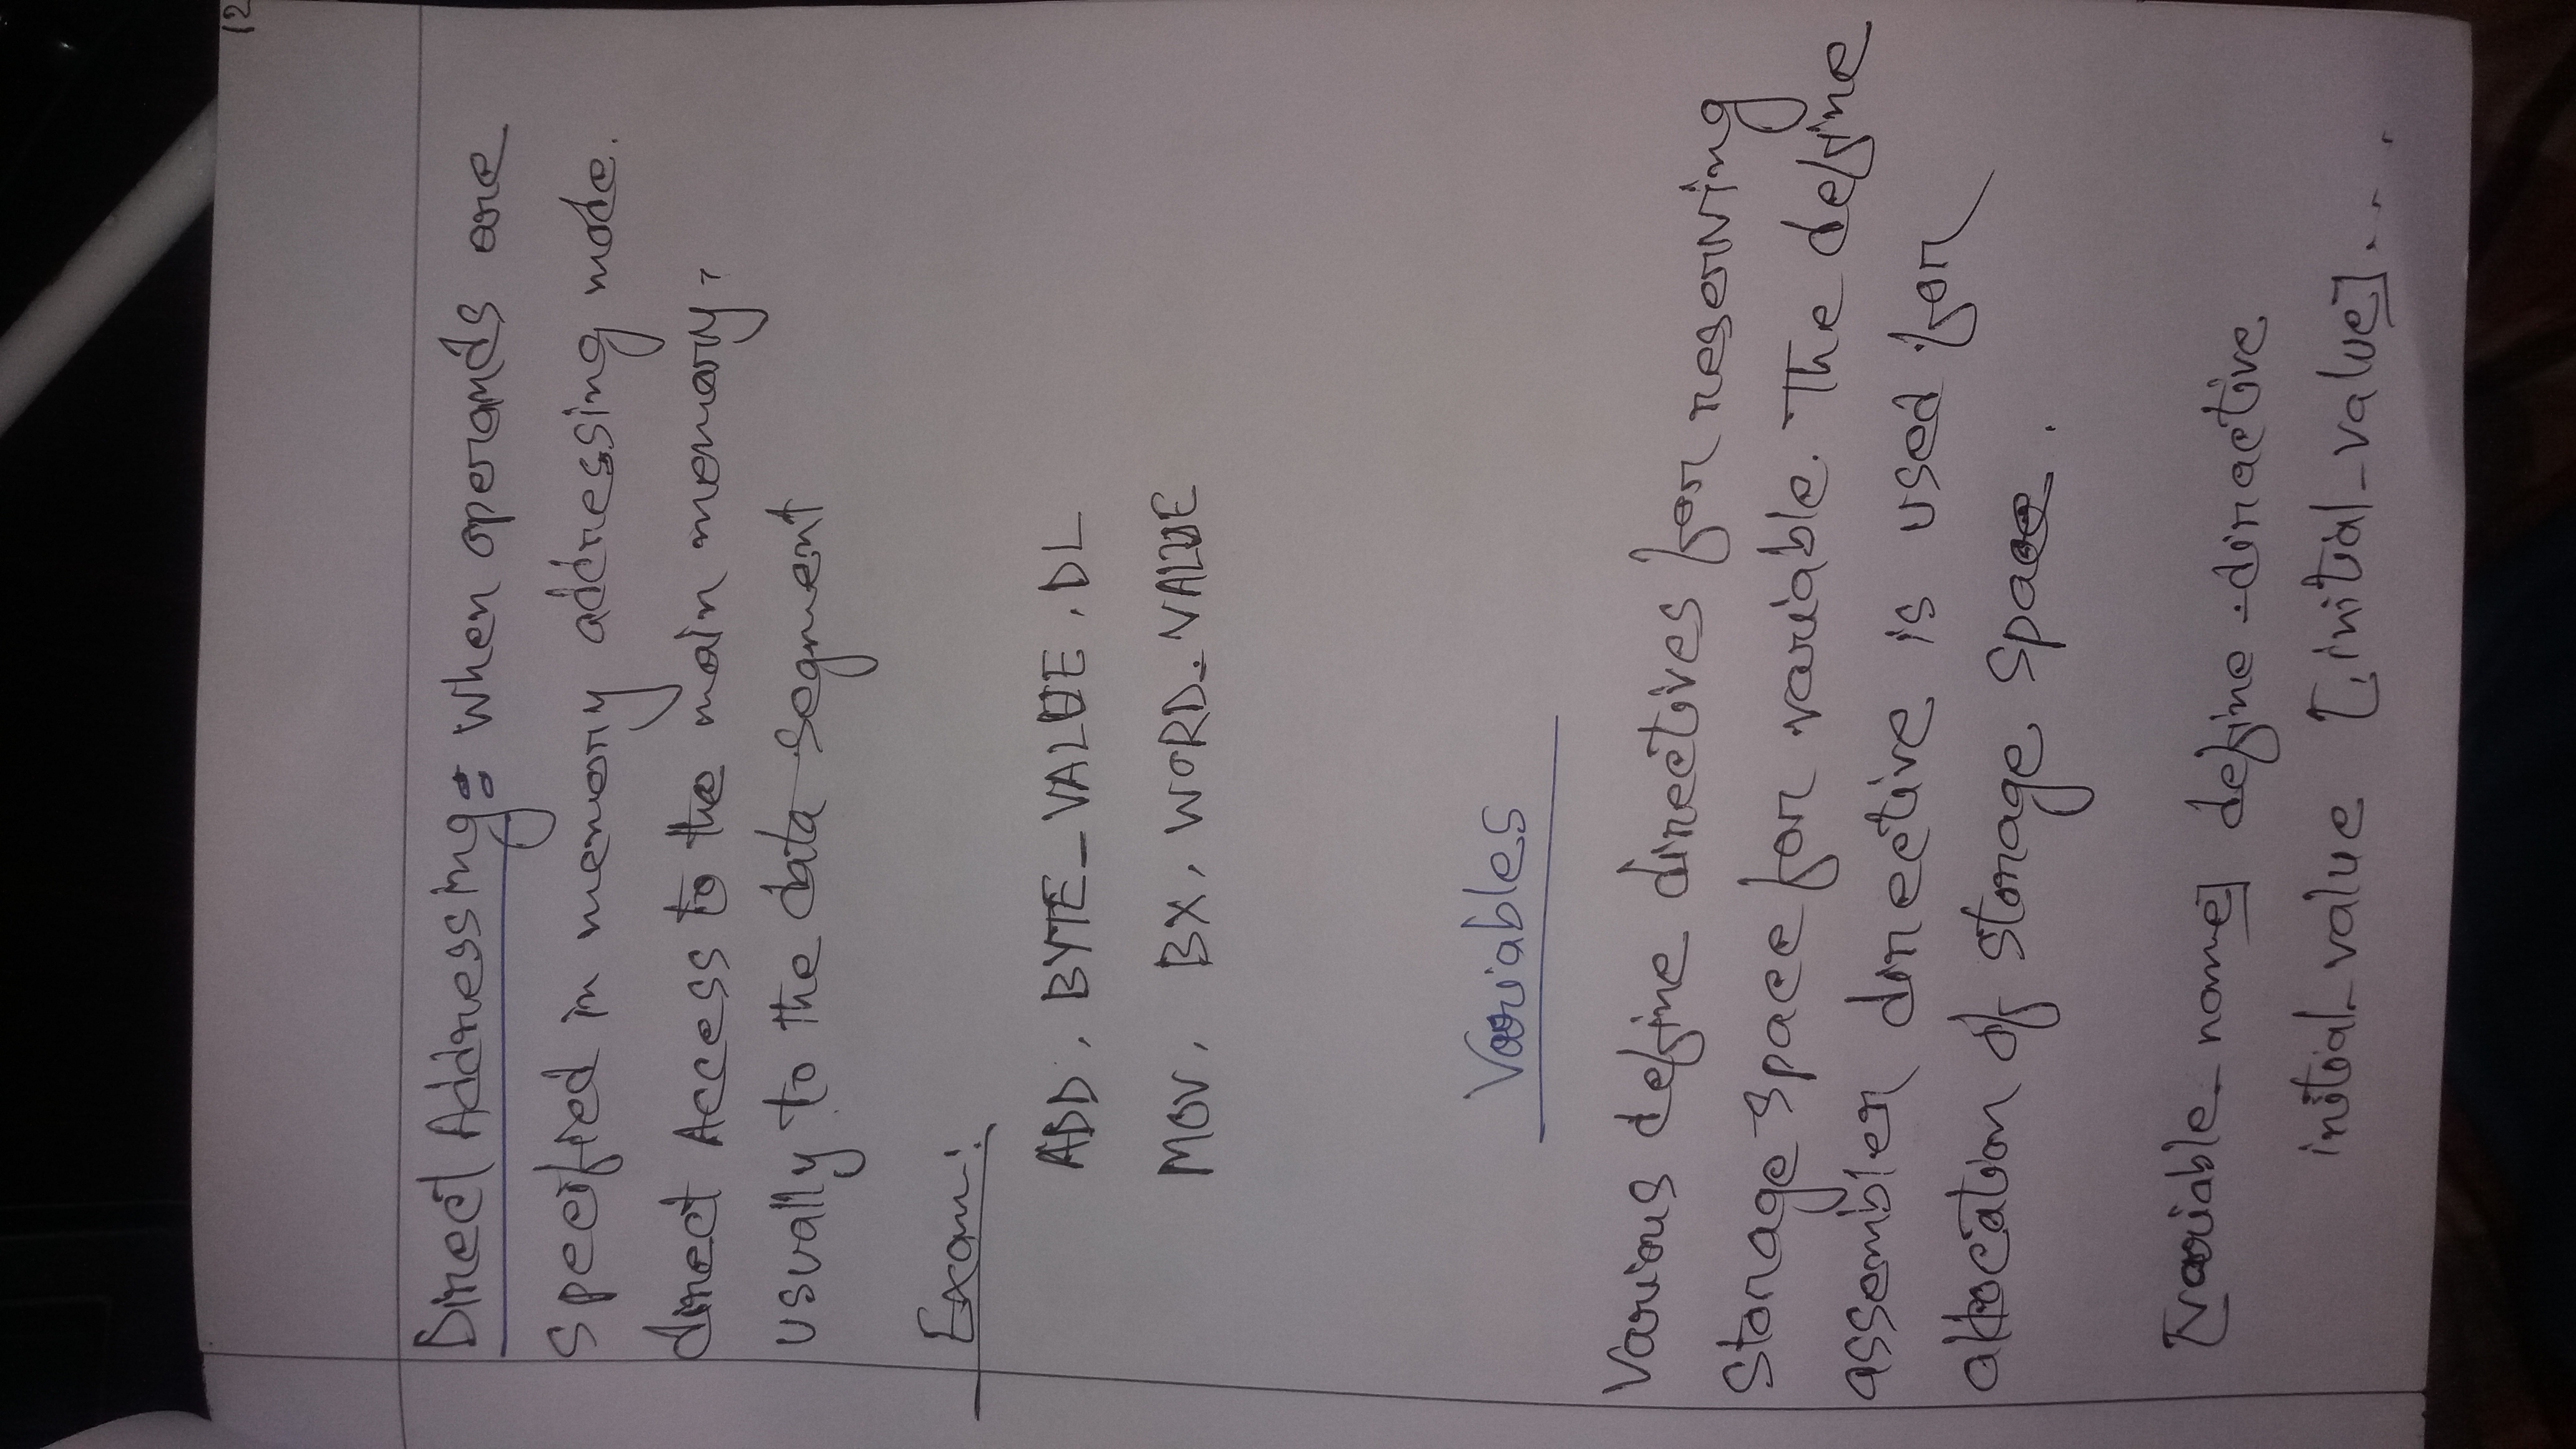 12
Direct Addressing: When operands are
specified in memory addressing mode.
direct Access to the main memory,
usually to the data segment
Exam:
ADD, BYTE_VALUE, DL
MOV, BX, WORD_VALUE
Variables
Various define directives for reserving
storage space for variable. The define
assembler directive is used for
allocation of storage space.
[variable_name] define-diractive
initial_value [,initial_value]....